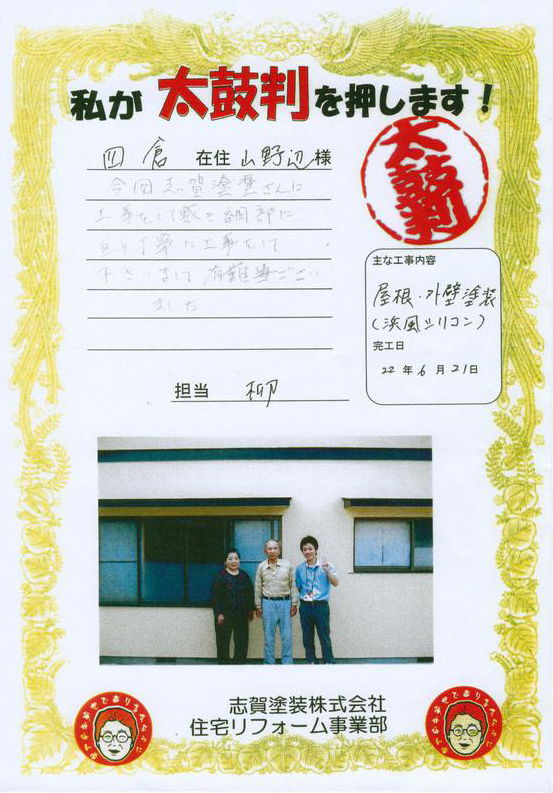 私が 太鼓判 を押します！
太鼓判
四倉 在住 山野辺 様
今回志賀塗装さんに
工事をして戴き細部に
亘り丁寧に工事をして
下さいまして有難うござい
ました
主な工事内容
屋根・外壁塗装
(浜風シリコン)
完工日
22年6月21日
担当 柳
志賀塗装株式会社
住宅リフォーム事業部